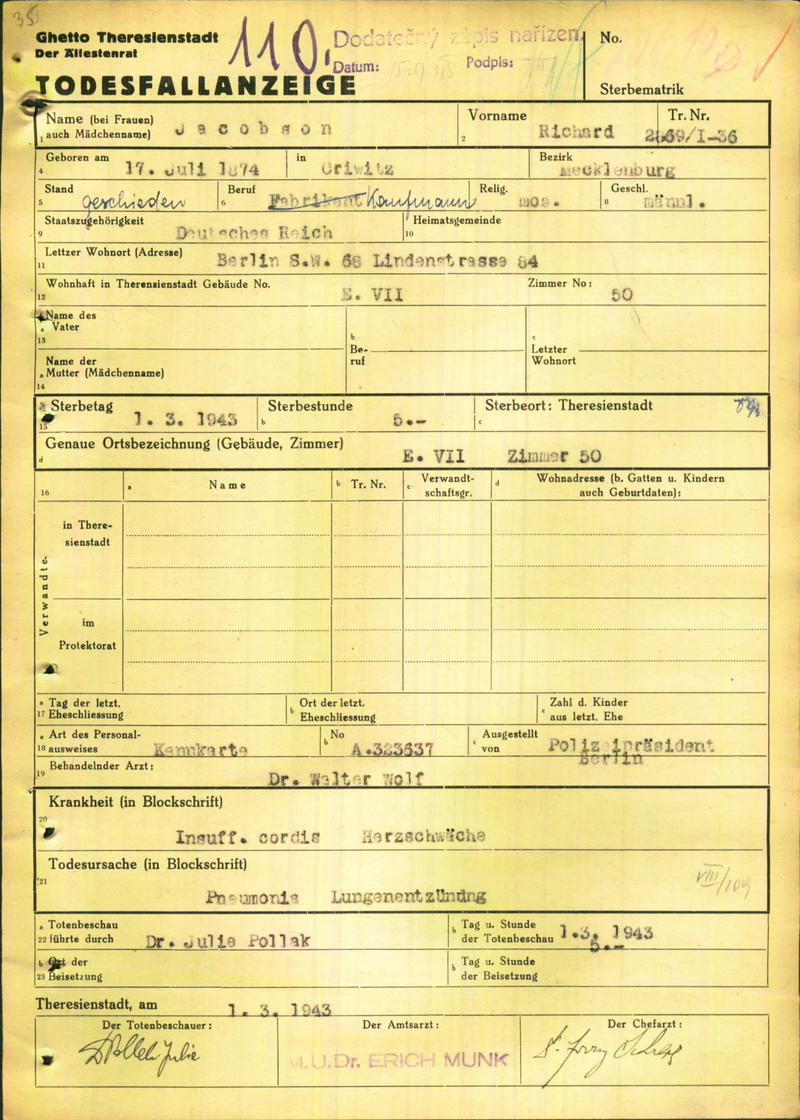 35
Ghetto Theresienstadt
Der Ällestenrat
110.
Dodatečný zápis nařízen
Datum:
Podpis:
No.
TODESFALLANZEIGE
Sterbematrik
Name (bei Frauen)
1 auch Mädchenname)
Jacobson
Vorname
2
Richard
Tr. Nr.
/I-36
Geboren am
4
17. Juli 1874
in
Criwitz
Bezirk
Mecklenburg
Stand
5
geschieden
Beruf
6
Fabrikant Kaufmann
Relig.
mos.
Geschl.
8
männl.
Staatszugehörigkeit
9
Deutsches Reich
Heimatsgemeinde
10
Lettzer Wohnort (Adresse)
11
Berlin S.W. 68 Lindenstrasse 84
Wohnhaft in Therensienstadt Gebäude No.
12
E. VII
Zimmer No:
50
Name des
a Vater
13
b
Be-
ruf
c
Letzter
Wohnort
Name der
a Mutter (Mädchenname)
14
a Sterbetag
15
1. 3. 1943
Sterbestunde
b
5.-
Sterbeort: Theresienstadt
c
Genaue Ortsbezeichnung (Gebäude, Zimmer)
d
E. VII Zimmer 50
16
a Name
b Tr. Nr.
c Verwandt-
schaftsgr.
d Wohnadresse (b. Gatten u. Kindern
auch Geburtdaten):
Verwandte
in There-
sienstadt
im
Protektorat
a Tag der letzt.
17 Eheschliessung
b Ort der letzt.
Eheschliessung
c Zahl d. Kinder
aus letzt. Ehe
a Art des Personal-
18 ausweises
Kennkarte
b No
A.323637
c Ausgestellt
von
Polizeipräsident
Berlin
Behandelnder Arzt:
19
Dr. Walter Wolf
Krankheit (in Blockschrift)
20
Insuff. cordis Herzschwäche
Todesursache (in Blockschrift)
21
VIII/109
Pneumonie Lungenentzündng
a Totenbeschau
22 führte durch
Dr. Julie Pollak
b Tag u. Stunde
der Totenbeschau
1.3. 1943
5.-
b Ort der
23 Beisetzung
b Tag u. Stunde
der Beisetzung
Theresienstadt, am
1. 3. 1943
Der Totenbeschauer:
Der Amtsarzt:
Der Chefarzt:
M.U.Dr. ERICH MUNK